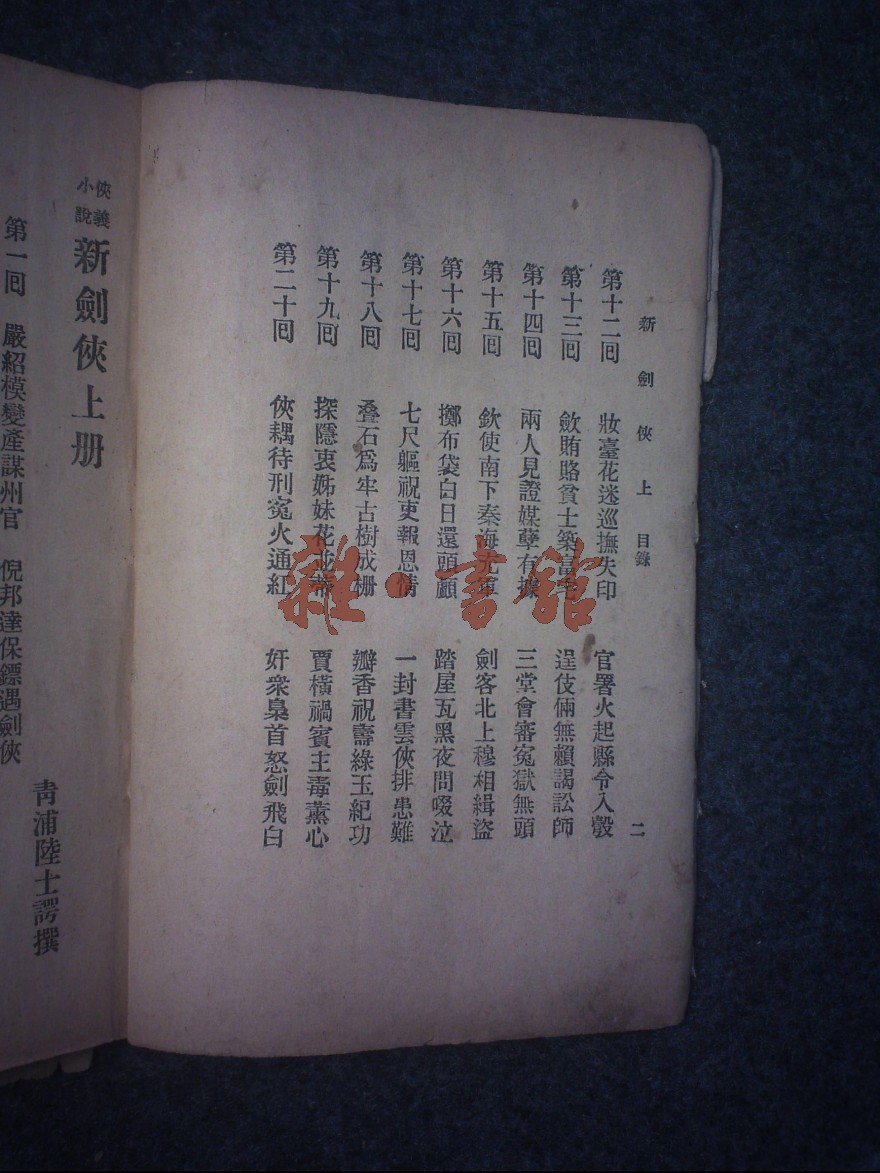 新劍俠上 目錄 二
第十二回 妝臺花迷巡撫失印 官署火起縣令入彀
第十三回 斂賄賂貧士築富宅 逞伎倆無賴謁訟師
第十四回 兩人見證媒孽有據 三堂會審冤獄無頭
第十五回 欽使南下秦海充軍 劍客北上穆相緝盜
第十六回 擲布袋白日還頭顱 踏屋瓦黑夜問啜泣
第十七回 七尺軀祝吏報恩情 一封書雲俠排患難
第十八回 叠石爲牢古樹成栅 瓣香祝壽綠玉紀功
第十九回 探隱衷姊妹花並蒂 賈橫禍賓主毒薰心
第二十回 俠耦待刑冤火通紅 奸衆梟首怒劍飛白
俠義小說 新劍俠上册
青浦陸士諤撰
第一回 嚴紹模變產謀州官 倪邦達保鏢遇劍俠
雜·書館